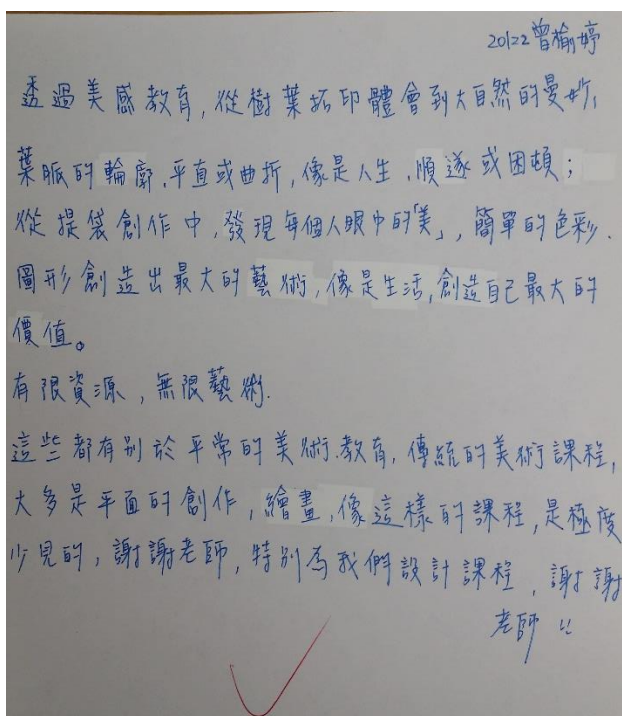 20122曾榆婷
透過美感教育,從樹葉拓印體會到大自然的曼妙,
葉脈的輪廓.平直或曲折,像是人生.順遂或困頓;
從提袋創作中,發現每個人眼中的「美」,簡單的色彩.
圖形創造出最大的藝術,像是生活,創造自己最大的
價值。
有限資源,無限藝術.
這些都有別於平常的美術.教育,傳統的美術課程,
大多是平面的創作,繪畫,像這樣的課程,是極度
少見的,謝謝老師,特別為我們設計課程,謝謝
老師!!